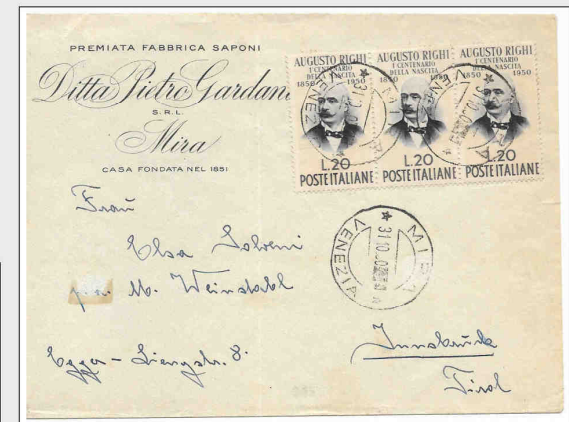 PREMIATA FABBRICA SAPONI
Ditta Pietro Gardani
S.R.L.
Mira
CASA FONDATA NEL 1851
AUGUSTO RIGHI
1° CENTENARIO
DELLA NASCITA
1850 1950
L.20
POSTE ITALIANE
AUGUSTO RIGHI
1° CENTENARIO
DELLA NASCITA
1850 1950
L.20
POSTE ITALIANE
AUGUSTO RIGHI
1° CENTENARIO
DELLA NASCITA
1850 1950
L.20
POSTE ITALIANE
MIRA
31.10
VENEZIA
Frau
Elsa
M. Weinstabl
Egger-Lienzstr. 8.
Innsbruck
Tirol